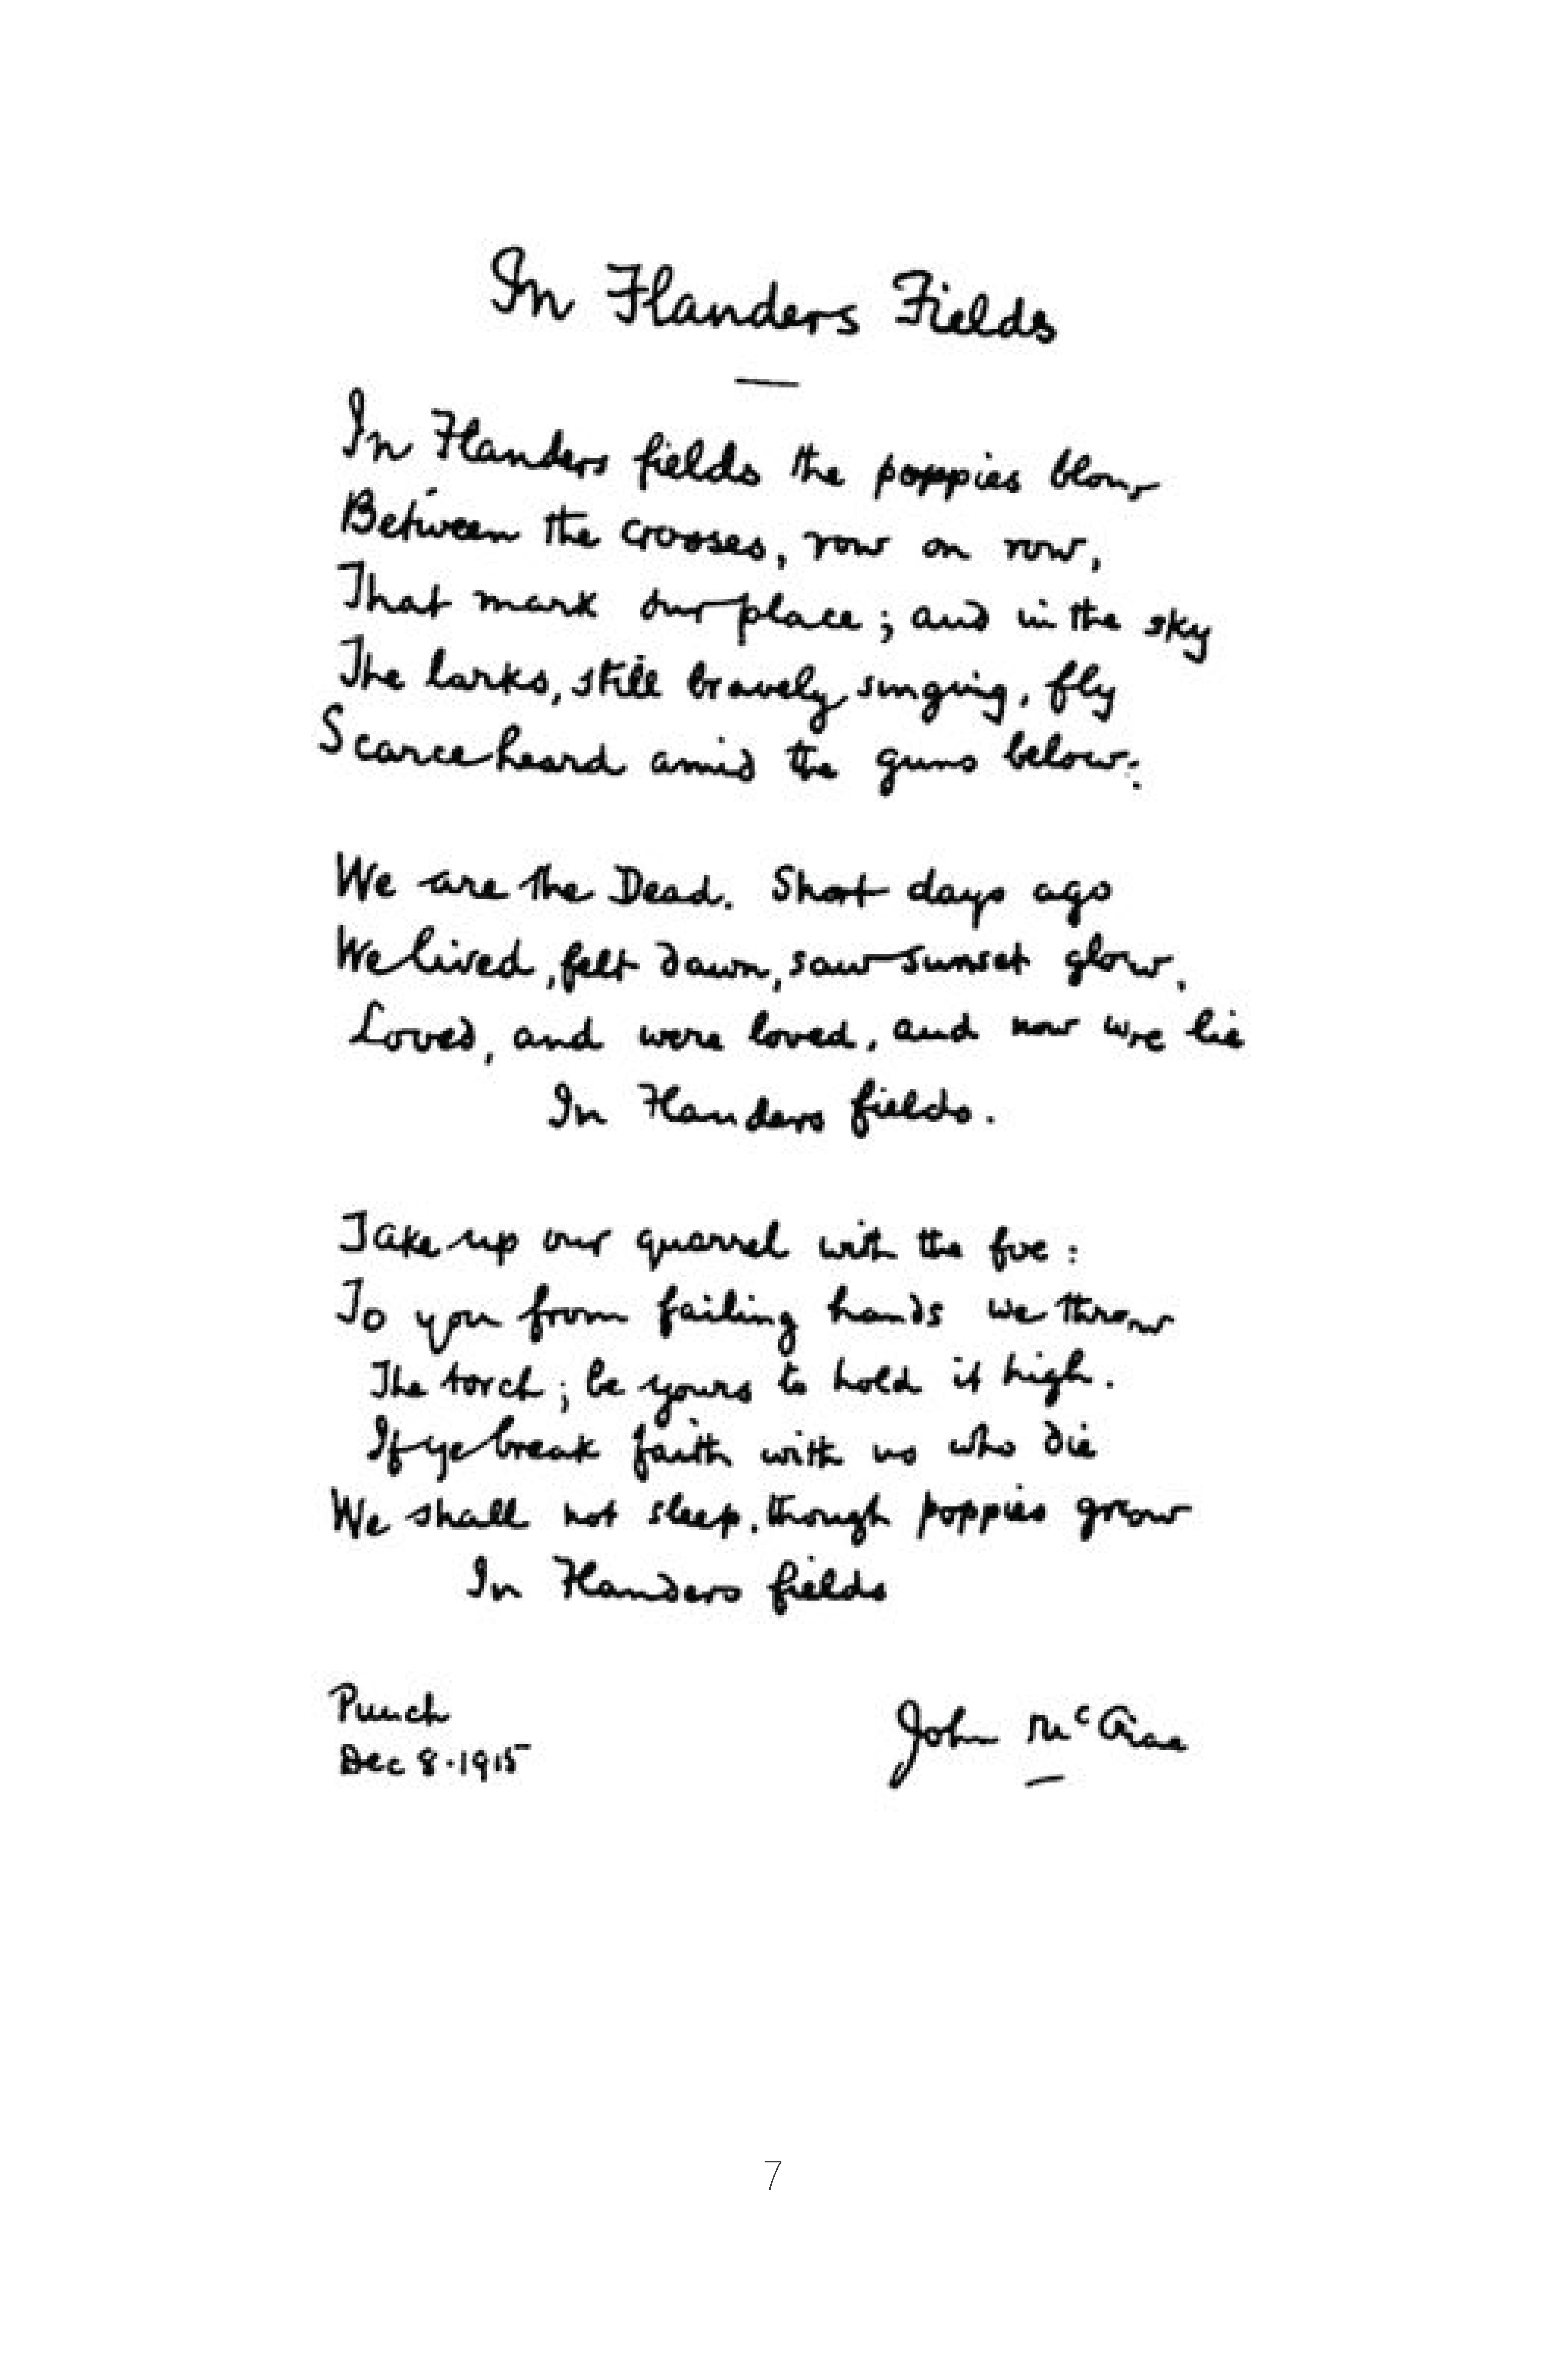 In Flanders Fields
In Flanders fields the poppies blow
Between the crosses, row on row,
That mark our place; and in the sky
The larks, still bravely singing, fly
Scarce heard amid the guns below.
We are the Dead. Short days ago
We lived, felt dawn, saw sunset glow,
Loved, and were loved, and now we lie
In Flanders fields.
Take up our quarrel with the foe:
To you from failing hands we throw
The torch; be yours to hold it high.
If ye break faith with us who die
We shall not sleep, though poppies grow
In Flanders fields
Punch
Dec 8·1915
John McCrae
7